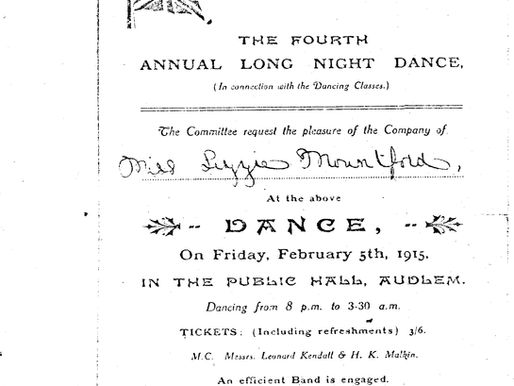 THE FOURTH
ANNUAL LONG NIGHT DANCE,
(In connection with the Dancing Classes.)
The Committee request the pleasure of the Company of
Miss Lizzie Mountford,
At the above
DANCE,
On Friday, February 5th, 1915,
IN THE PUBLIC HALL, AUDLEM.
Dancing from 8 p.m. to 3-30 a.m.
TICKETS: (Including refreshments) 3/6.
M.C. Messrs. Leonard Kendall & H. K. Malkin.
An efficient Band is engaged.